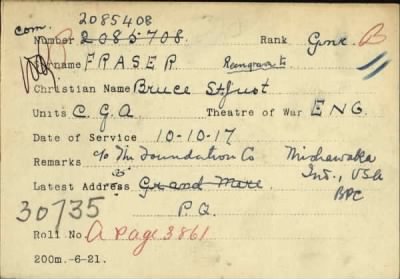 com. 2085408
Number 2085708. Rank Gnr. B
Surname FRASER
Christian Name Bruce St. Just
Units C.G.A. Theatre of War ENG.
Date of Service 10-10-17
Remarks c/o The Foundation Co Mishawaka
Ind., USA
Latest Address Grand Mere BPC
P.Q.
30735
Roll No. A Page 3861
200m.-6-21.